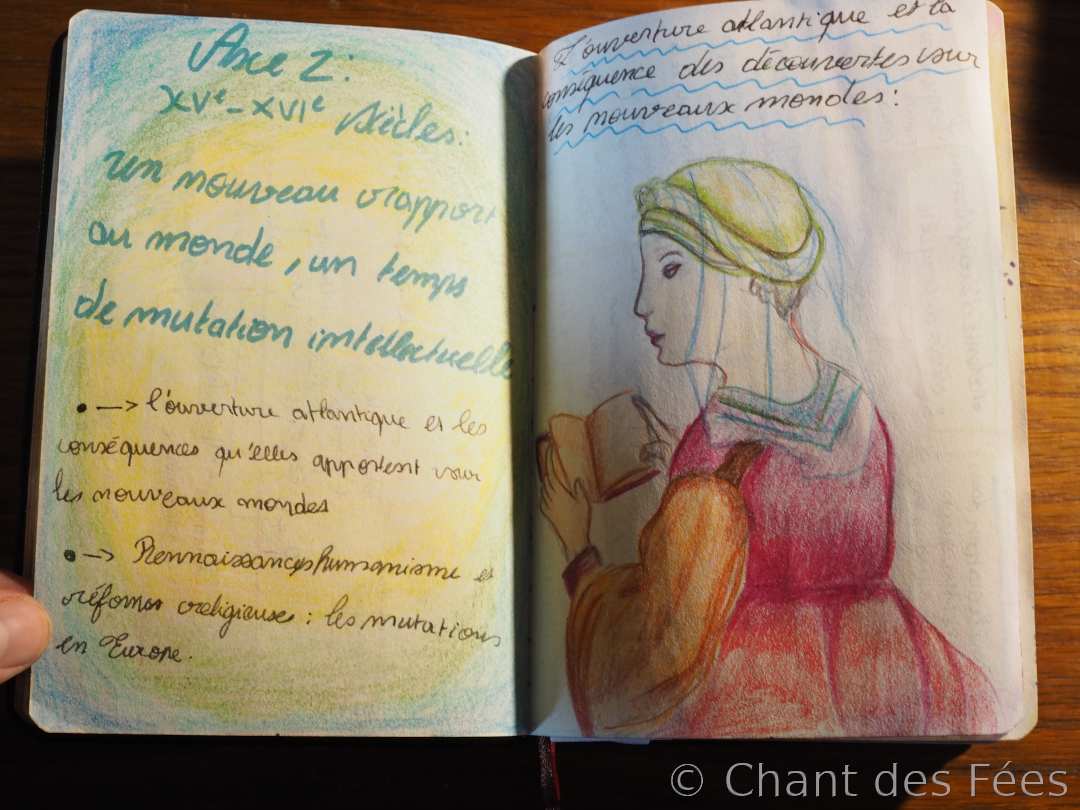 Axe 2:
XVe-XVIe siècles:
un nouveau rapport
au monde, un temps
de mutation intellectuelle
• -> l'ouverture atlantique et les
conséquences qu'elles apportent sur
les nouveaux mondes
• -> Rennaissance, humanisme et
réformes religieuses : les mutations
en Europe.
L'ouverture atlantique et la
conséquence des découvertes sur
les nouveaux mondes:
© Chant des Fées